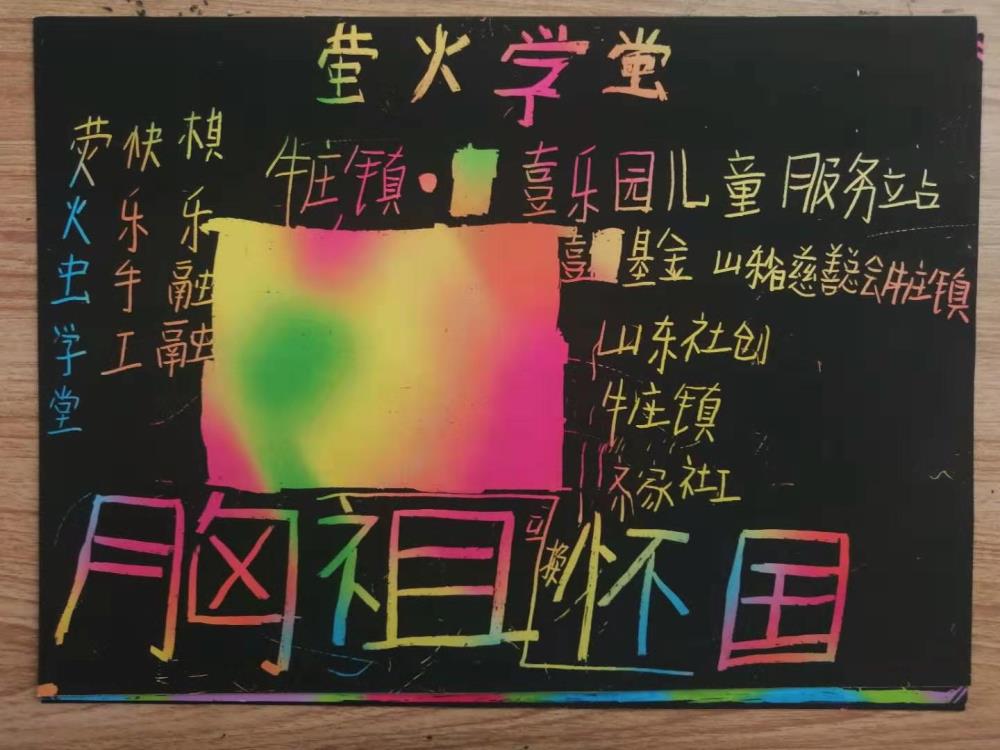 萤火学堂
荧火虫学堂
快乐手工
棋乐融融
牛庄镇·喜乐园儿童服务站
喜基金 山东省慈善总会牛庄镇
山东社创
牛庄镇
齐家社工
胸祖怀国
可换